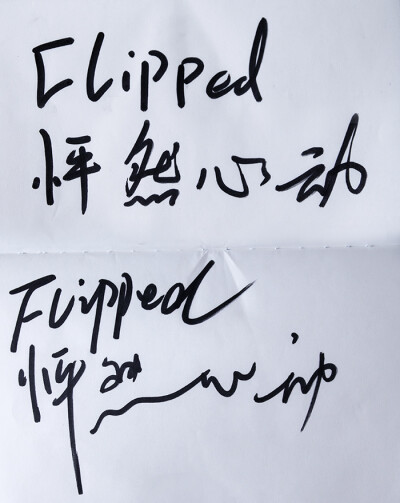 Flipped
怦然心动
Flipped
怦然心动